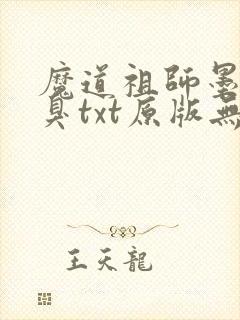 魔道祖師墨
臭txt原版無
王天龍